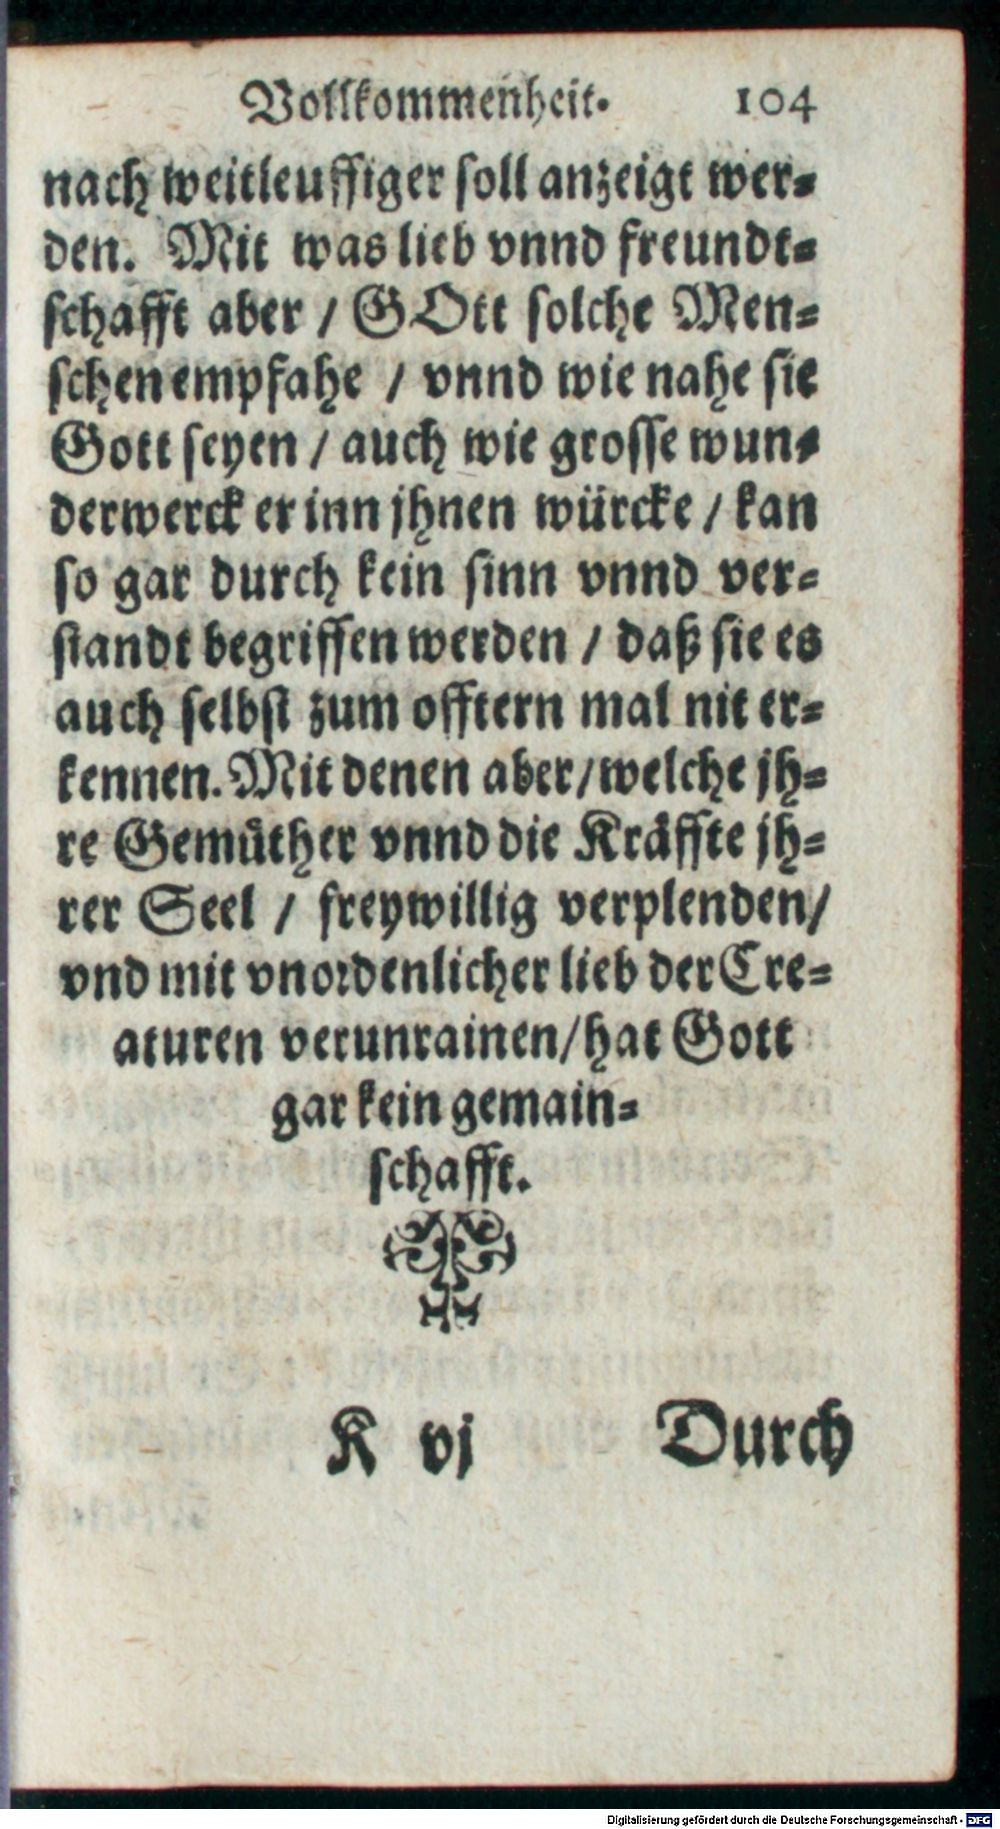 Vollkommenheit. 104
nach weitleuffiger soll anzeigt wer⸗
den. Mit was lieb vnnd freundt⸗
schafft aber / GOtt solche Men⸗
schen empfahe / vnnd wie nahe sie
Gott seyen / auch wie grosse wun⸗
derwerck er inn jhnen würcke / kan
so gar durch kein sinn vnnd ver⸗
standt begriffen werden / daß sie es
auch selbst zum offtern mal nit er⸗
kennen. Mit denen aber / welche jh⸗
re Gemuͤther vnnd die Kraͤffte jh⸗
rer Seel / freywillig verplenden /
vnd mit vnordenlicher lieb der Cre⸗
aturen verunrainen / hat Gott
gar kein gemain⸗
schafft.
K vj Durch
Digitalisierung gefördert durch die Deutsche Forschungsgemeinschaft - DFG